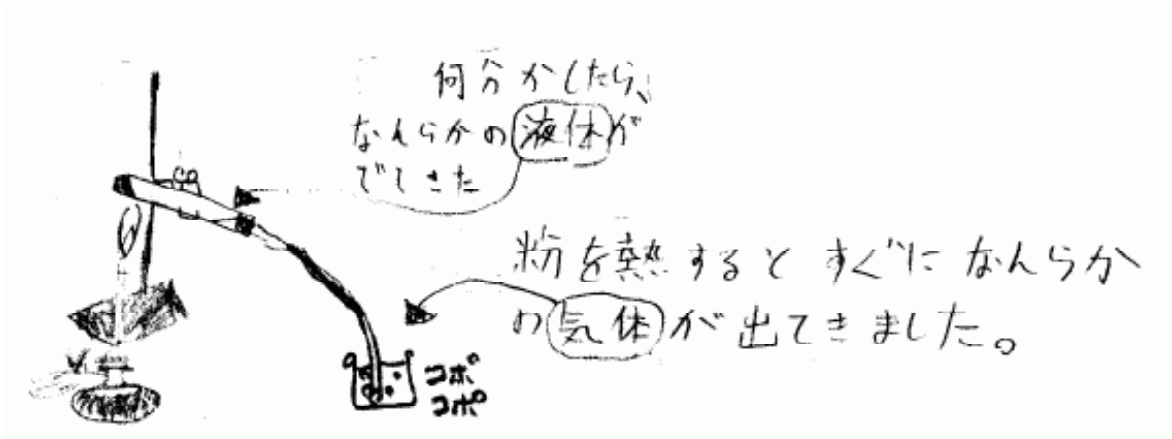 何分かしたら、
なんらかの液体が
でてきた
粉を熱するとすぐになんらか
の気体が出てきました。
コポ
コポ